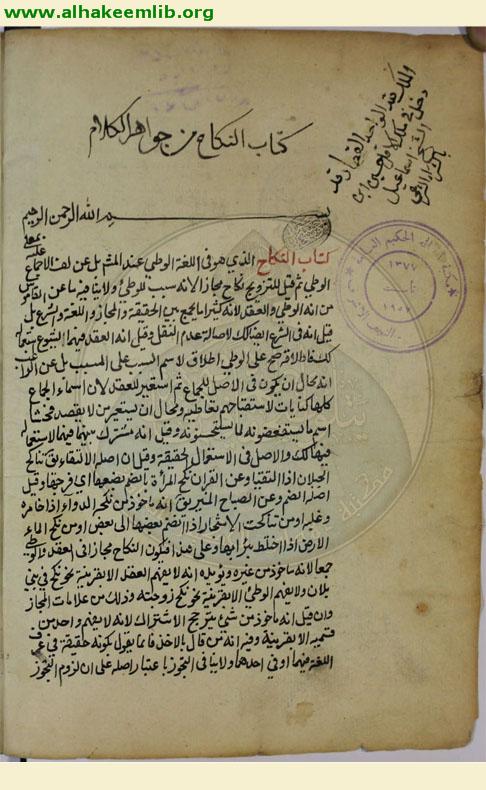 www.alhakeemlib.org
كتاب النكاح من جواهر الكلام
بسم الله الرحمن الرحيم
كتاب النكاح الذي هو في اللغة الوطي عند المش بل عن لف الاجماع عليه
الوطي ثم قيل للتزويج نكاح مجازا لانه سبب للوطئ ولا ينافيه ما عن
من انه الوطي والعقد لانه كثيرا ما يجمع بين الحقيقة والمجاز واللغة والشرع بل
قيل انه في الشرع ايضا كك لاصالة عدم النقل وقيل انه العقد فيهما لشيوع
كك فاطلاقه ح على الوطي اطلاق لاسم السبب على المسبب بل عن الراغب
انه محال ان يكون في الاصل للجماع ثم استعير للعقد لان اسماء الجماع
كلها كنايات لاستقباحهم تعاطيه ومحال ان يستعير من لا يقصد فحشا
اسم ما يستفضعونه لما يستحسنونه وقيل انه مشترك بينهما فيهما لاستعماله
فيهما كك والاصل في الاستعمال الحقيقة وقيل ان اصله الالتقاء يق تناكح
الجبلان اذا التقيا وعن الفراء نكح المرأة بالضم بضعها اي فرجها وقيل
اصله الضم وعن المصباح المنير يق انه مأخوذ من نكحه الدواء اذا خامره
وغلبه او من تناكحت الاشجار اذا انضم بعضها الى بعض او من نكح الماء
الارض اذا اختلط بثرابها وعلى هذا فيكون النكاح مجازا في العقد والوطي
جمعا لانه مأخوذ من غيره ويؤيده انه لا يفهم العقد الا بقرينة نحو نكح في بني
فلان ولا يفهم الوطئ الا بقرينة نحو نكح زوجته وذلك من علامات المجاز
وان قيل انه مأخوذ من شئ يترجح الاشتراك لانه لا يفهم واحد من
قسميه الا بقرينة وفيه انه من قال بالاخذ فانما يقول بكونه حقيقة في عرف
اللغة فيهما او في احدهما ولا ينافي التجوز باعتبار اصله على ان لزوم التجوز